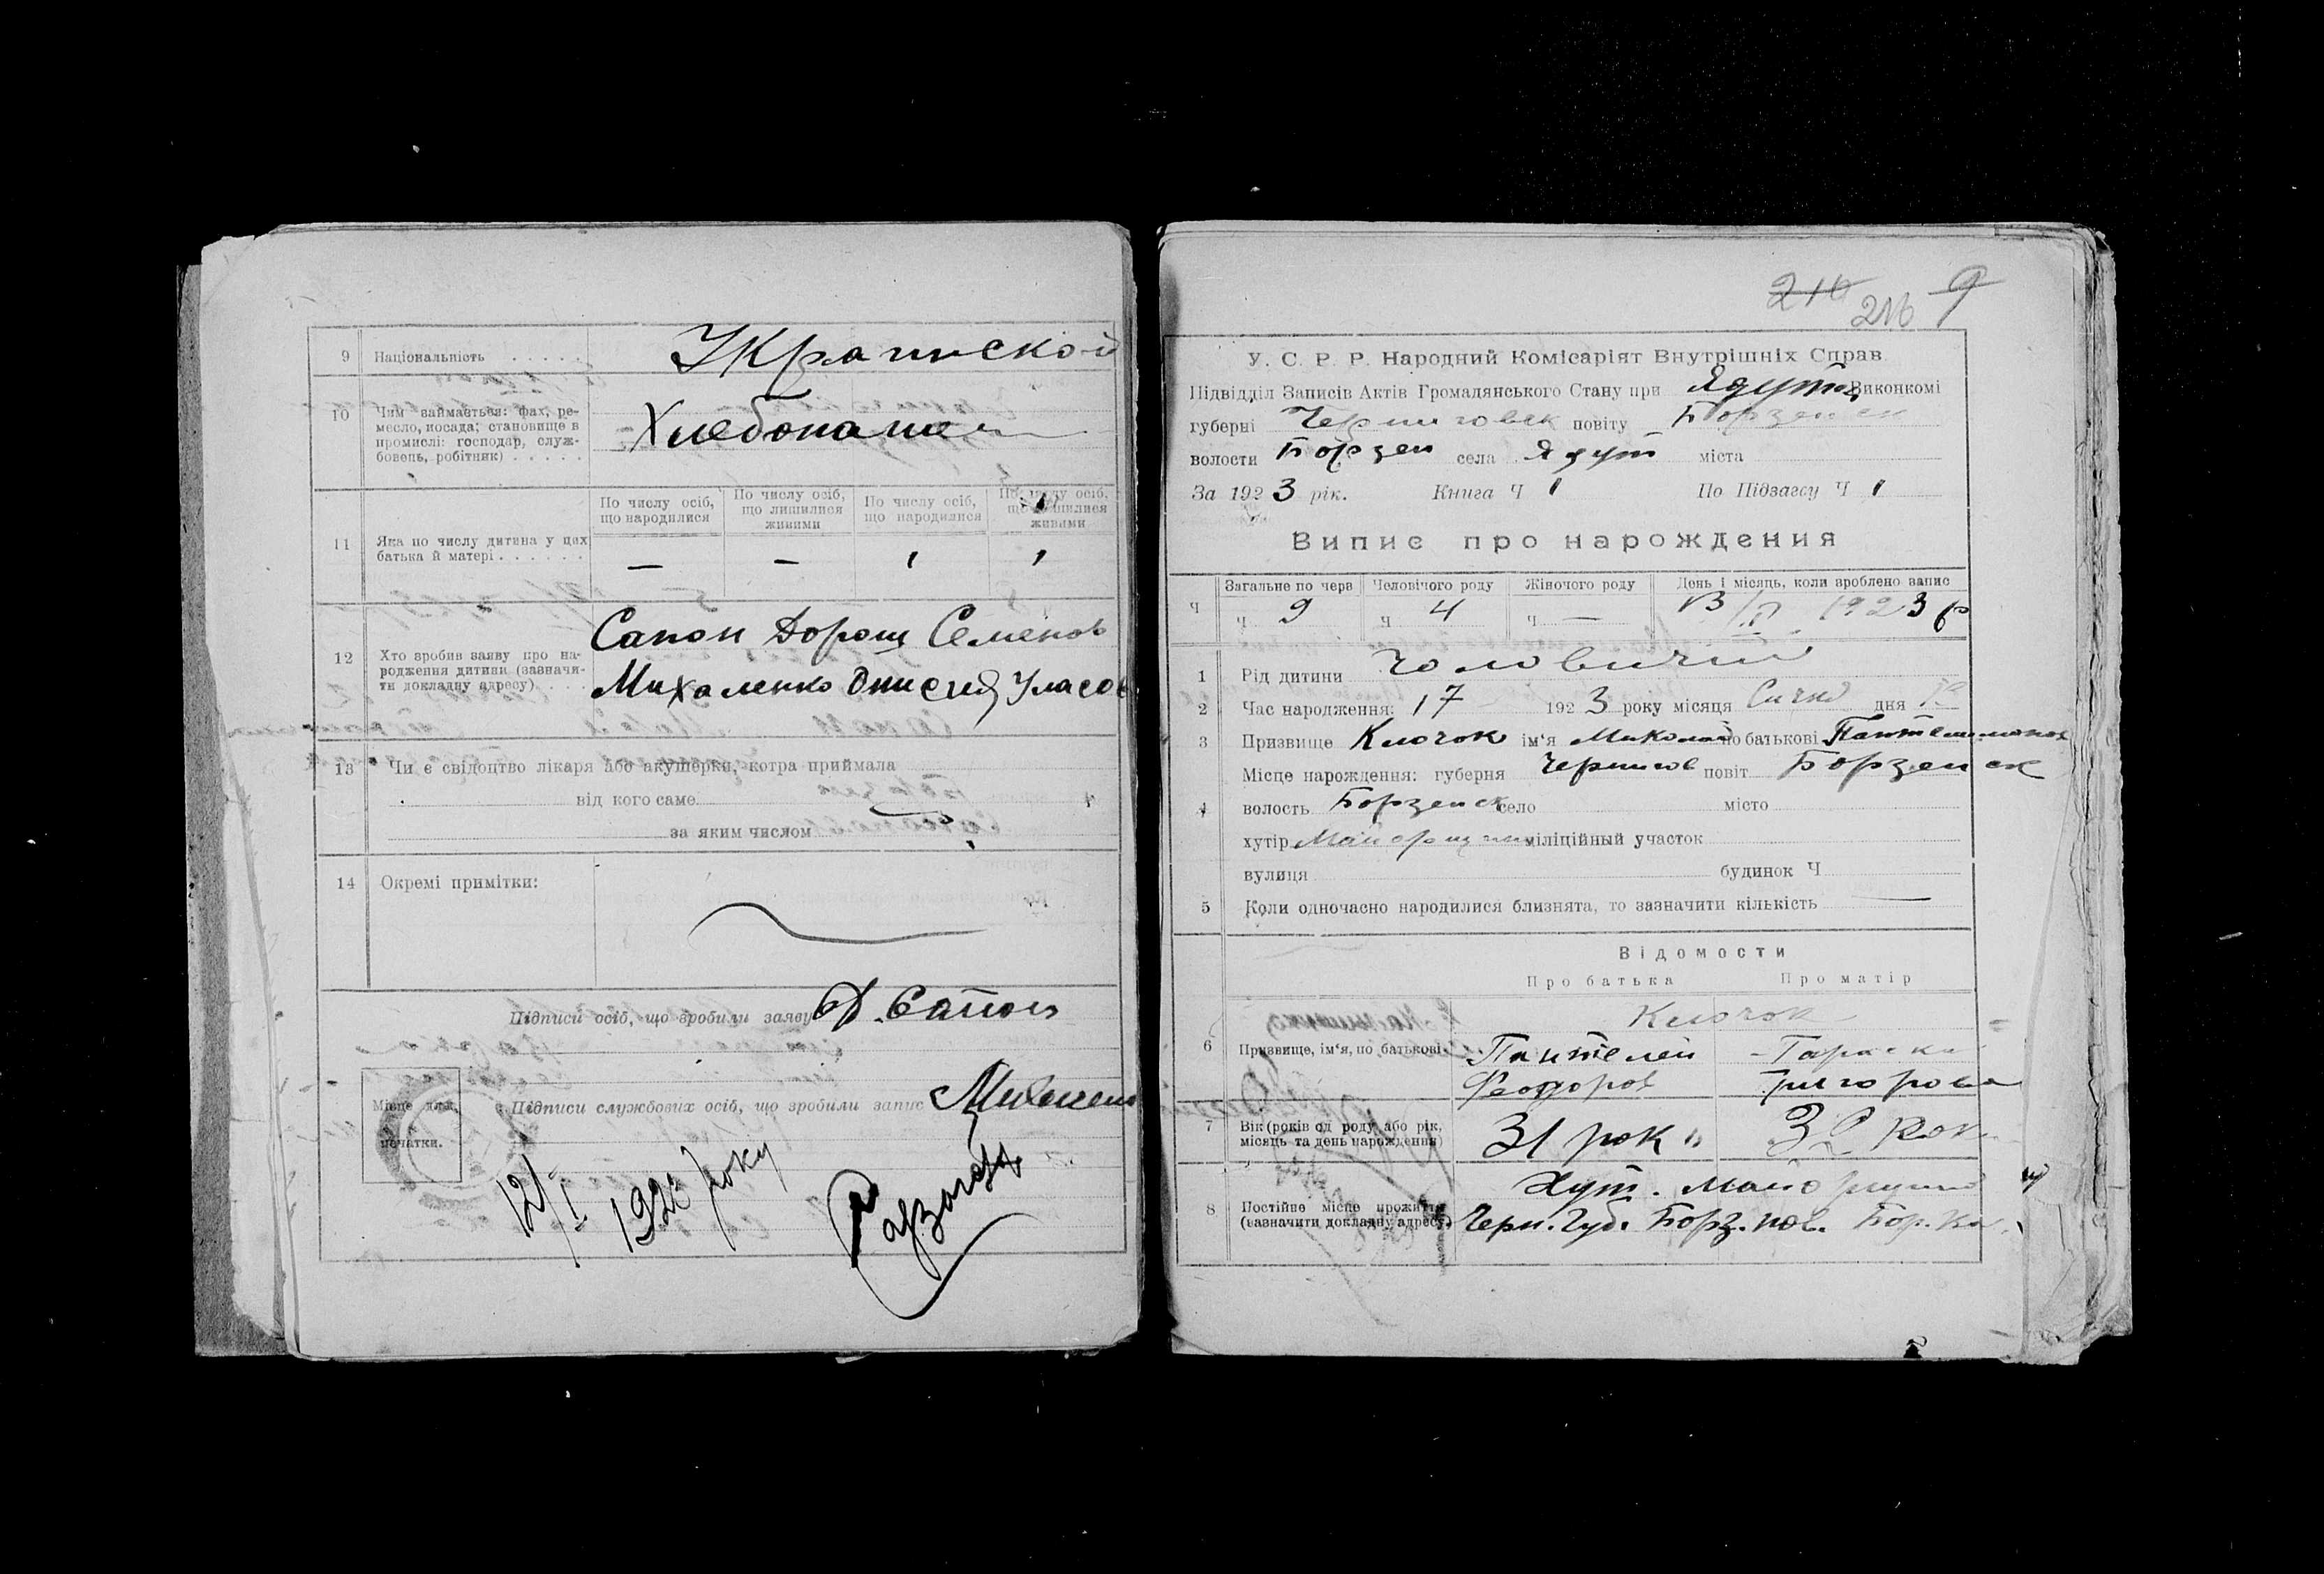 9 Національність . . . . . Украинской
10 Чим займається: фах, ре-
месло, посада; становище в
промислі: господар, служ-
бовець, робітник) . . . . .
Хлебопашец
11 Яка по числу дитина у цих
батька й матері . . . . . .
По числу осіб, що народилися
По числу осіб, що лишилися живими
По числу осіб, що народилися
По числу осіб, що лишилися живими
— — 1 1
12 Хто зробив заяву про на-
родження дитини (зазначи-
ти докладну адресу) . . .
Сапон Дорош Семенов
Михаленко Онисий Уласов
13 Чи є свідоцтво лікаря або акушерки, котра приймала
від кого саме
за яким числом
14 Окремі примітки:
Підписи осіб, що зробили заяву Д. Сапон
Місце для печатки.
Підписи службових осіб, що зробили запис
12/I 1923 року
210 216 9
У. С. Р. Р. Народний Комісаріят Внутрішніх Справ
Підвідділ Записів Актів Громадянського Стану при Ядут Виконкомі
губерні Черниговск повіту Борзенск
волости Борзен села Ядут міста
За 1923 рік. Книга Ч 1 По Підзагсу Ч 1
Випис про нарождения
Ч Загальне по черв Человічого роду Жіночого роду День і місяць, коли зроблено запис
Ч 9 Ч 4 Ч — 1923 р
1 Рід дитини Чоловичий
2 Час народження: 17 1923 року місяця Сичня дня
3 Призвище Клочок ім'я Миколай по батькові Пантелимонов
4 Місце нарождения: губерня Чернигов повіт Борзенск
волость Борзенск село місто
хутір Майорщина міліційный участок
вулиця будинок Ч
5 Коли одночасно народилися близнята, то зазначити кількість —
Відомости
Про батька Про матір
Клочок
6 Призвище, ім'я, по батькові
Пантелей
Феодоров Григорова
7 Вік (років од роду або рік,
місяць та день народження)
31 рок
8 Постійне місце прожиття
(зазначити докладну адресу)
Хут. Майорщина
Черн. Губ. Борз. пов.